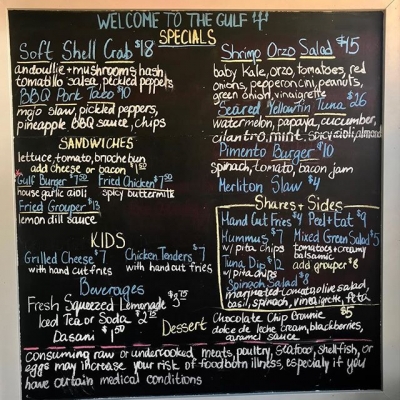 WELCOME TO THE GULF
SPECIALS
Soft Shell Crab $18
andouille + mushrooms hash,
tomatillo salsa, pickled peppers
BBQ Pork Taco $10
mojo slaw, pickled peppers,
pineapple BBQ sauce, chips
Shrimp Orzo Salad $15
baby kale, orzo, tomatoes, red
onions, pepperoncini, peanuts,
green onion vinaigrette
Seared Yellowfin Tuna $26
watermelon, papaya, cucumber,
cilantro, mint, spicy aioli, almond
Pimento Burger $10
spinach, tomato, bacon jam
Merliton Slaw $4
SANDWICHES
lettuce, tomato, brioche bun
add cheese or bacon $1.50
Gulf Burger $7.50 Fried Chicken $7.50
house garlic aioli spicy buttermilk
Fried Grouper $13
lemon dill sauce
Shares + Sides
Hand Cut Fries $4 Peel + Eat $9
Hummus $7 Mixed Green Salad $5
w/ pita chips tomatoes + creamy
balsamic
Tuna Dip $12 add grouper $8
w/ pita chips
Spinach Salad $8
marinated tomato, olive salad,
basil, spinach, vinaigrette, feta
KIDS
Grilled Cheese $7 Chicken Tenders $7
with hand cut fries with hand cut fries
Beverages
Fresh Squeezed Lemonade $3.75
Iced Tea or Soda $2.75
Dasani $1.50
Dessert Chocolate Chip Brownie $5
dolce de leche cream, blackberries,
caramel sauce
Consuming raw or undercooked meats, poultry, seafood, shellfish, or
eggs may increase your risk of foodborn illness, especially if you
have certain medical conditions